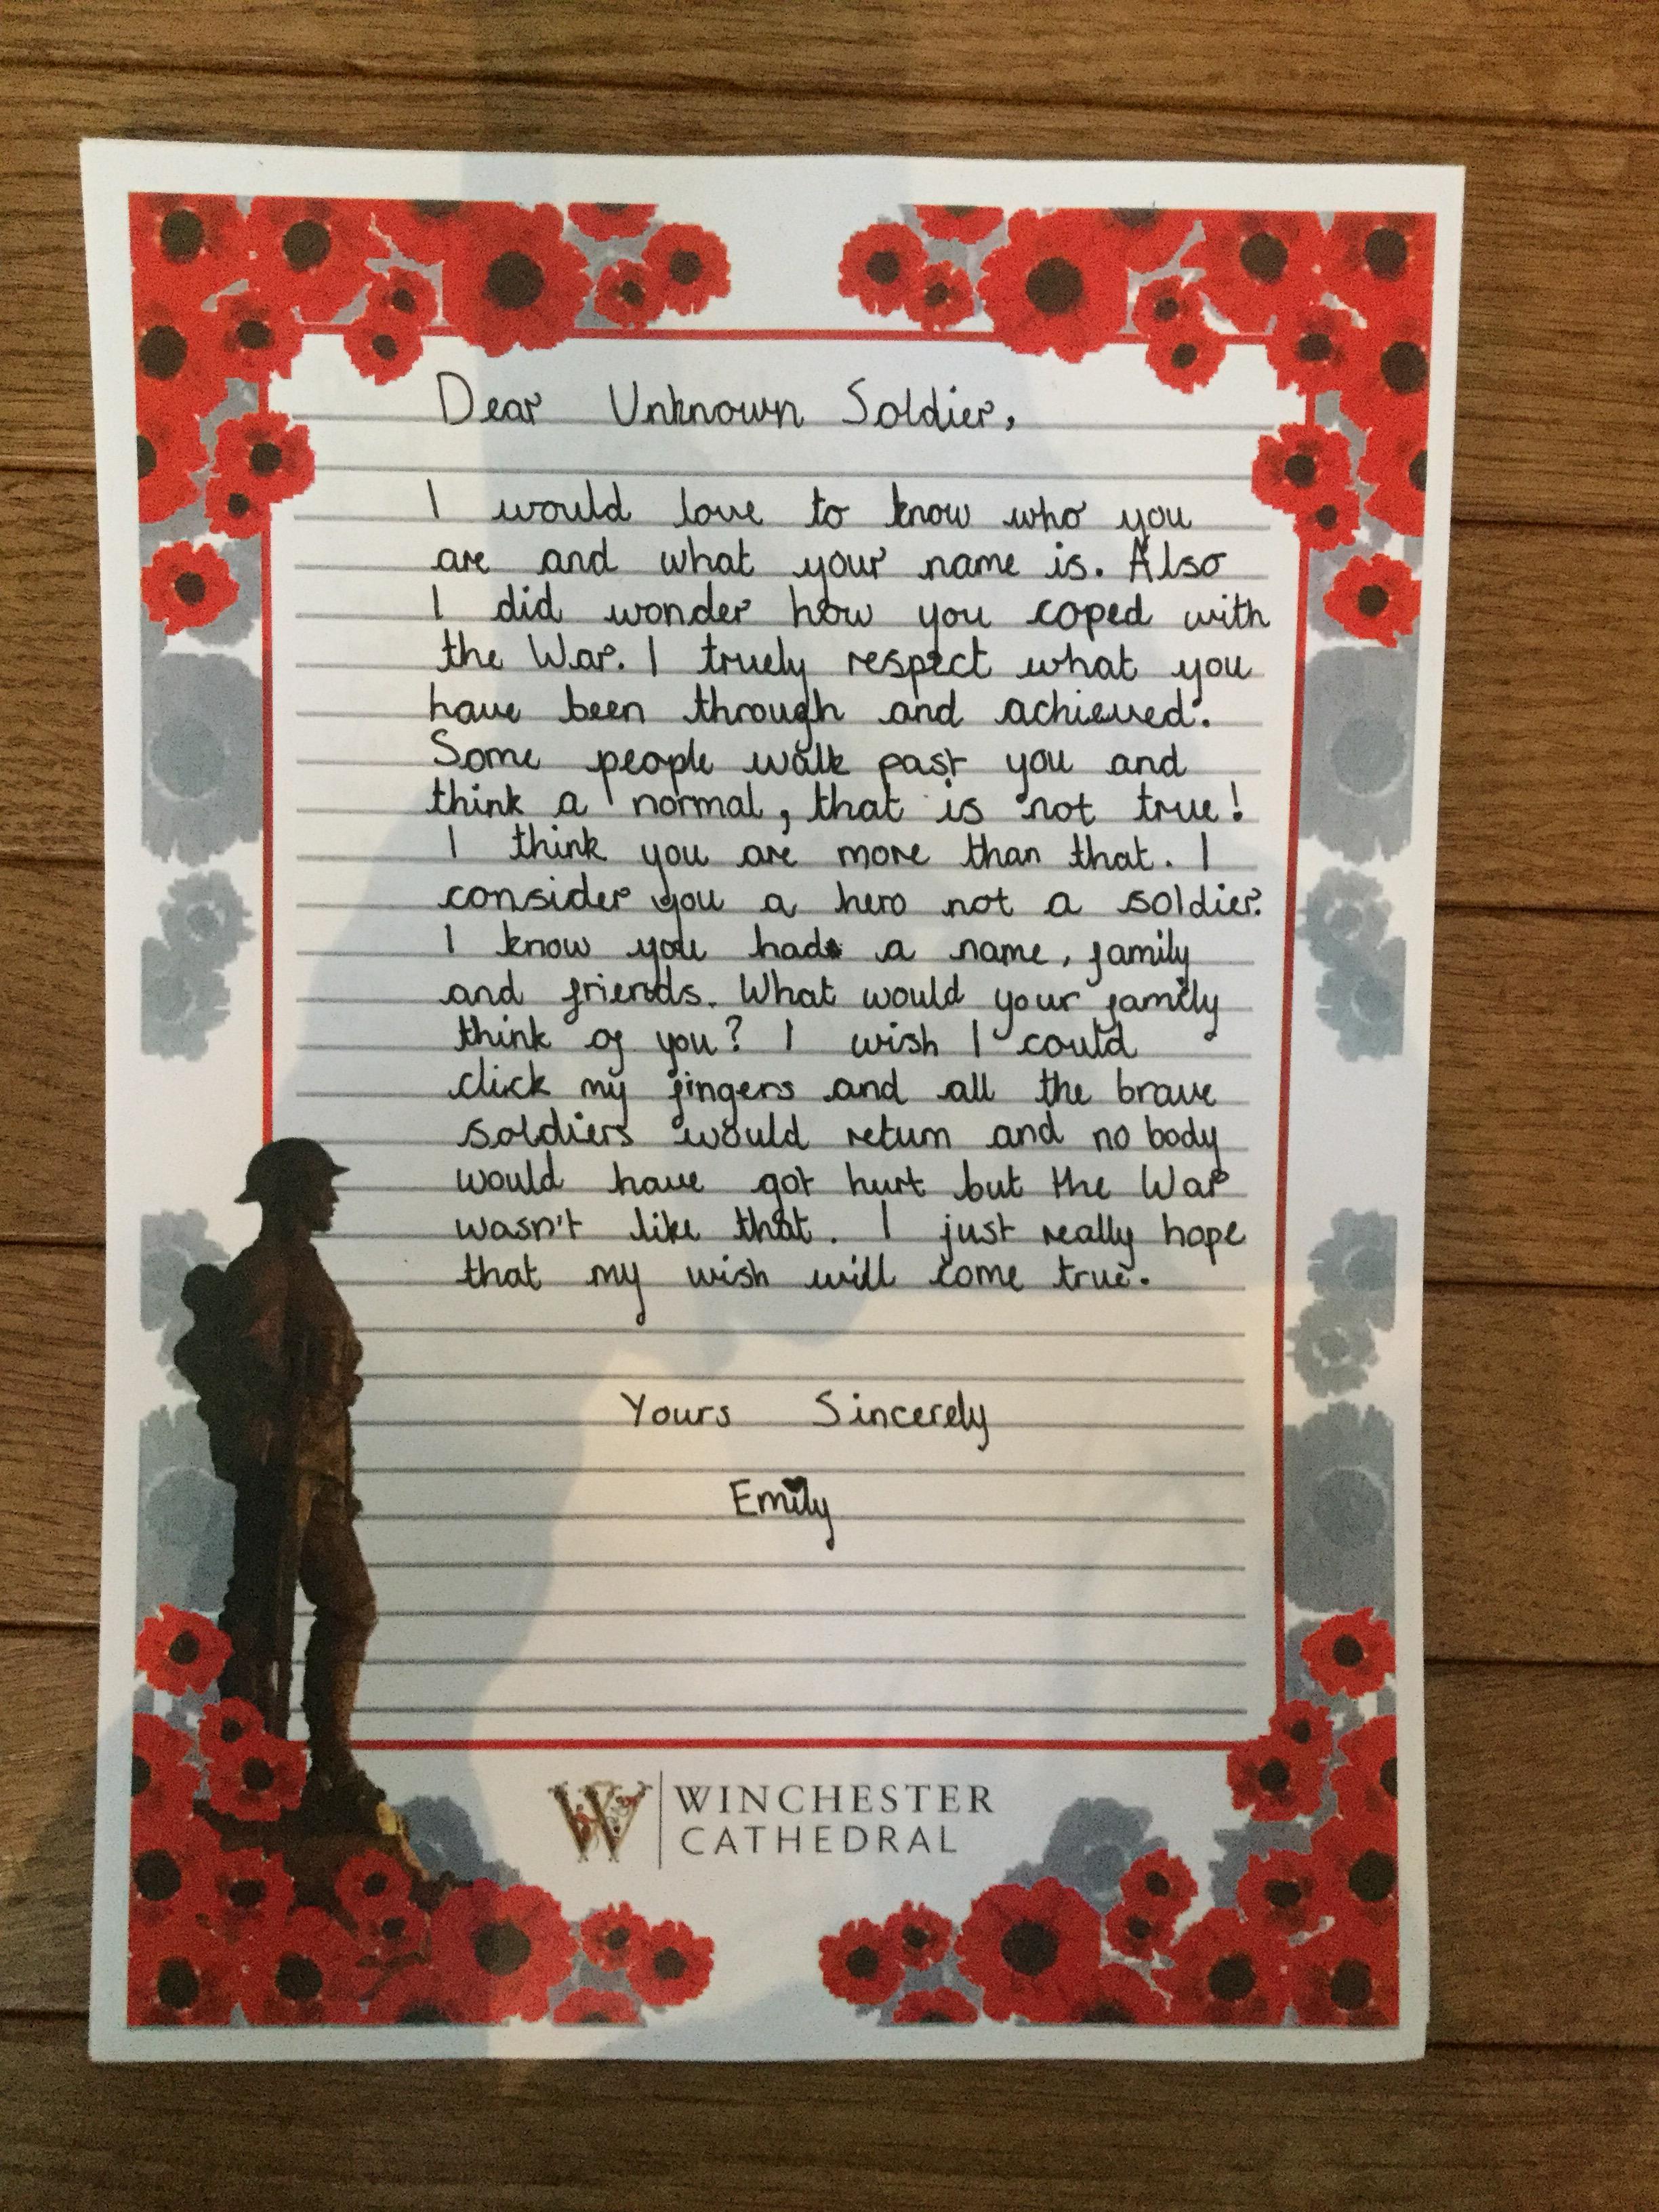 Dear Unknown Soldier,
I would love to know who you
are and what your name is. Also
I did wonder how you coped with
the War. I truely respect what you
have been through and achieved.
Some people walk past you and
think a normal, that is not true!
I think you are more than that. I
consider you a hero not a soldier.
I know you had a name, family
and friends. What would your family
think of you? I wish I could
click my fingers and all the brave
soldiers would return and no body
would have got hurt but the War
wasn't like that. I just really hope
that my wish will come true.
Yours Sincerely
Emily
W WINCHESTER
CATHEDRAL